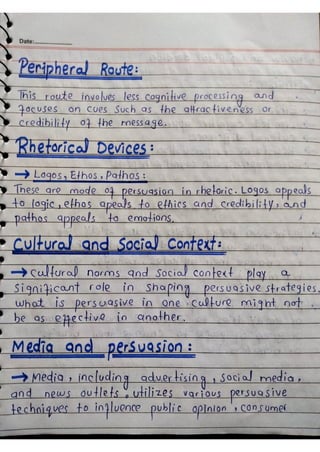 Date:
Peripheral Route:
This route involves less cognitive processing and
focuses on cues such as the attractiveness or
credibility of the message.
Rhetorical Devices:
→ Logos, Ethos, Pathos:
These are mode of persuasion in rhetoric. Logos appeals
to logic, ethos apeals to ethics and credibility, and
pathos appeals to emotions.
Cultural and Social Context:
→ Cultural norms and social context play a
significant role in shaping persuasive strategies.
what is persuasive in one culture might not
be as effective in another.
Media and persuasion:
→ Media, including advertising, social media,
and news outlets, utilizes various persuasive
techniques to influence public opinion, consumer